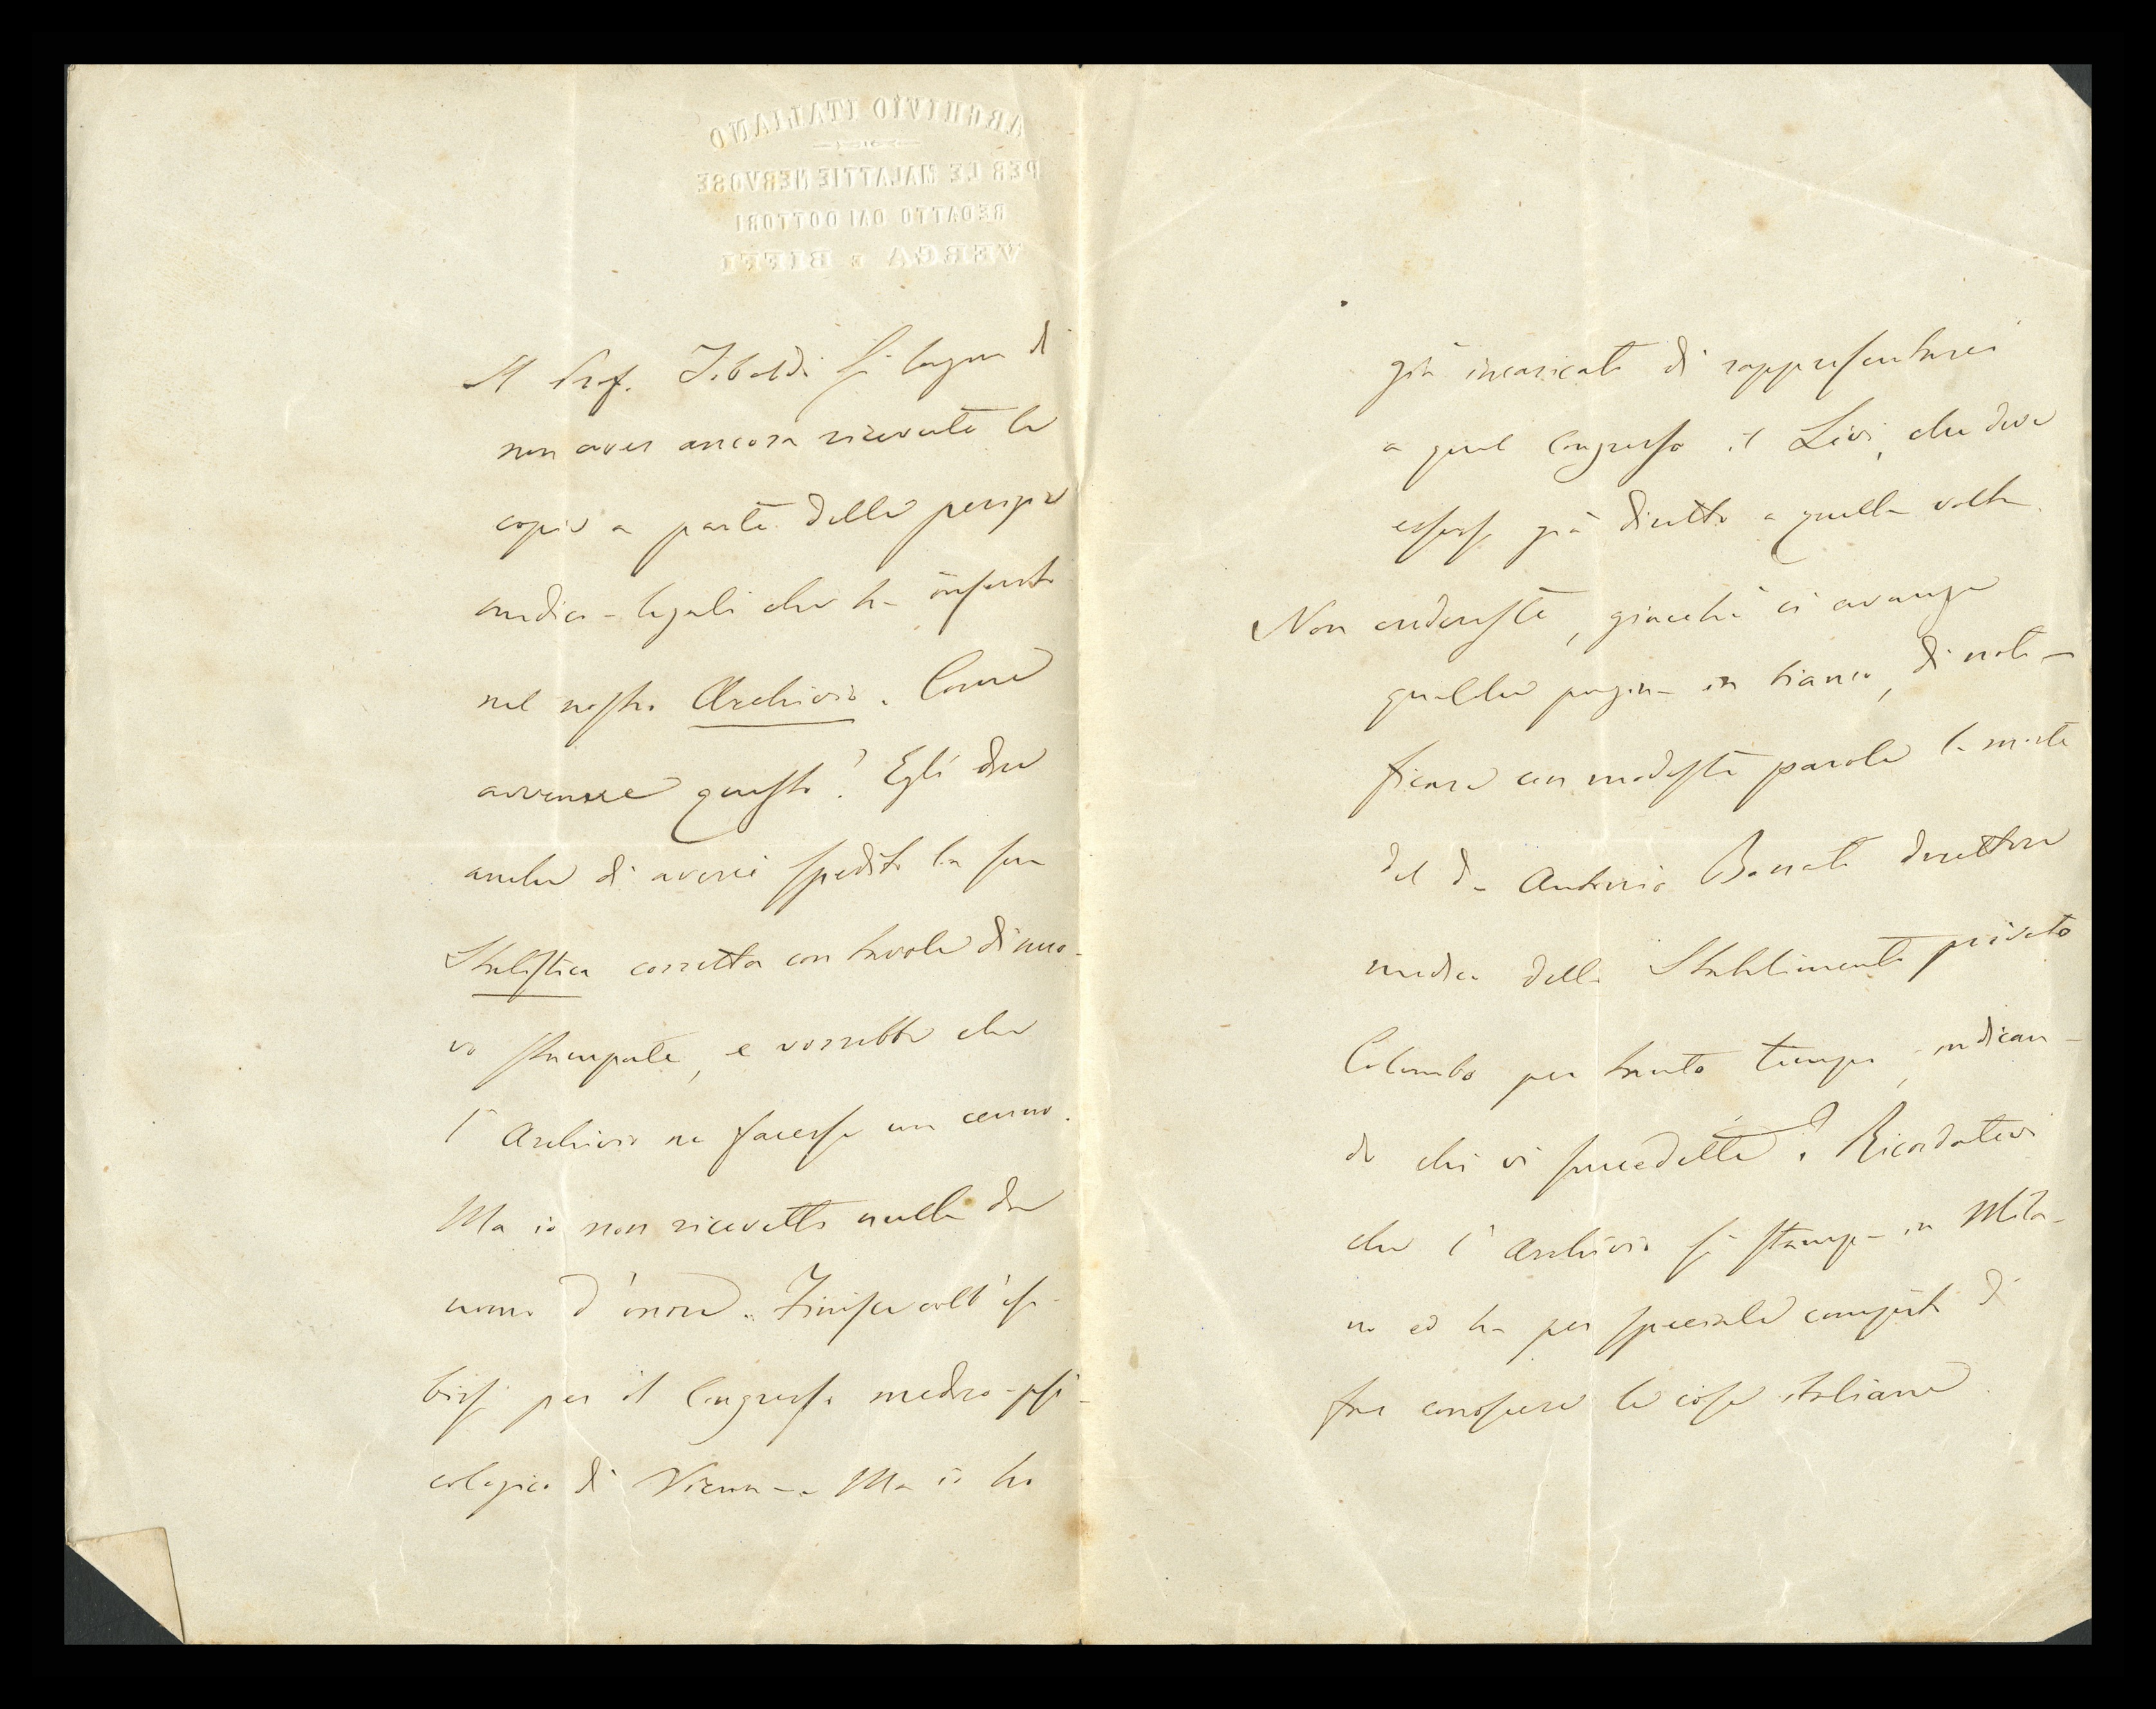 ARCHIVIO ITALIANO
PER LE MALATTIE NERVOSE
REDATTO DAI DOTTORI
VERGA E BIFFI
Il Prof. Tebaldi si lagna di
non aver ancora ricevute le
copie a parte delle perizie
medico-legali che ha inserito
nel nostro Archivio. Come
avvenne questo? Egli dice
anche di averci spedito la sua
Statistica corretta con tavole di nuo-
vo stampate, e vorrebbe che
l'Archivio ne facesse un cenno.
Ma io non ricevetti nulla da
uomo d'onore. Finisce coll'esi-
birsi per il Congresso medico-psi-
cologico di Vienna. Ma io ho
già incaricato di rappresentarci
a quel Congresso il Livi, che deve
essersi già diretto a quella volta.
Non credereste, giacchè ci avanza
qualche pagina in bianco, di noti-
ficare con modeste parole la morte
del dr Antonio direttore
medico dello Stabilimento privato
Colombo per tanto tempo, indican-
do chi vi succedette? Ricordatevi
che l'Archivio si stampa in Mila-
no ed ha per speciale compito di
far conoscere le cose italiane.